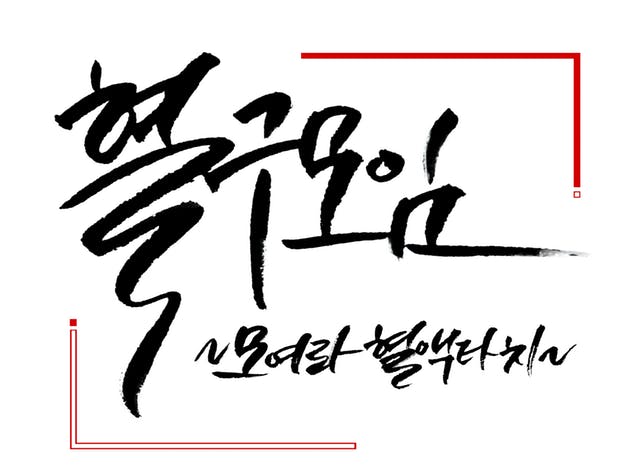 혈구모임
~모여라 혈액타치~